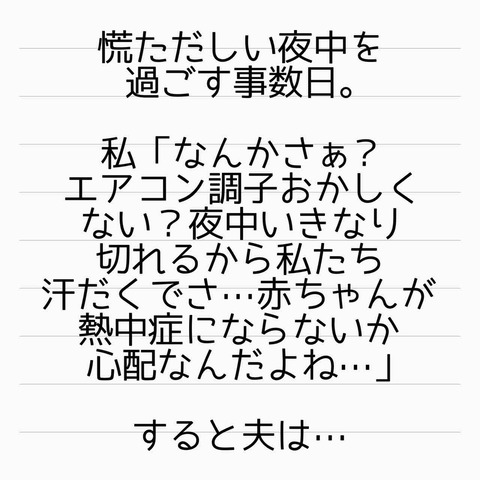 慌ただしい夜中を
過ごす事数日。
私「なんかさぁ？
エアコン調子おかしく
ない？夜中いきなり
切れるから私たち
汗だくでさ…赤ちゃんが
熱中症にならないか
心配なんだよね…」
すると夫は…